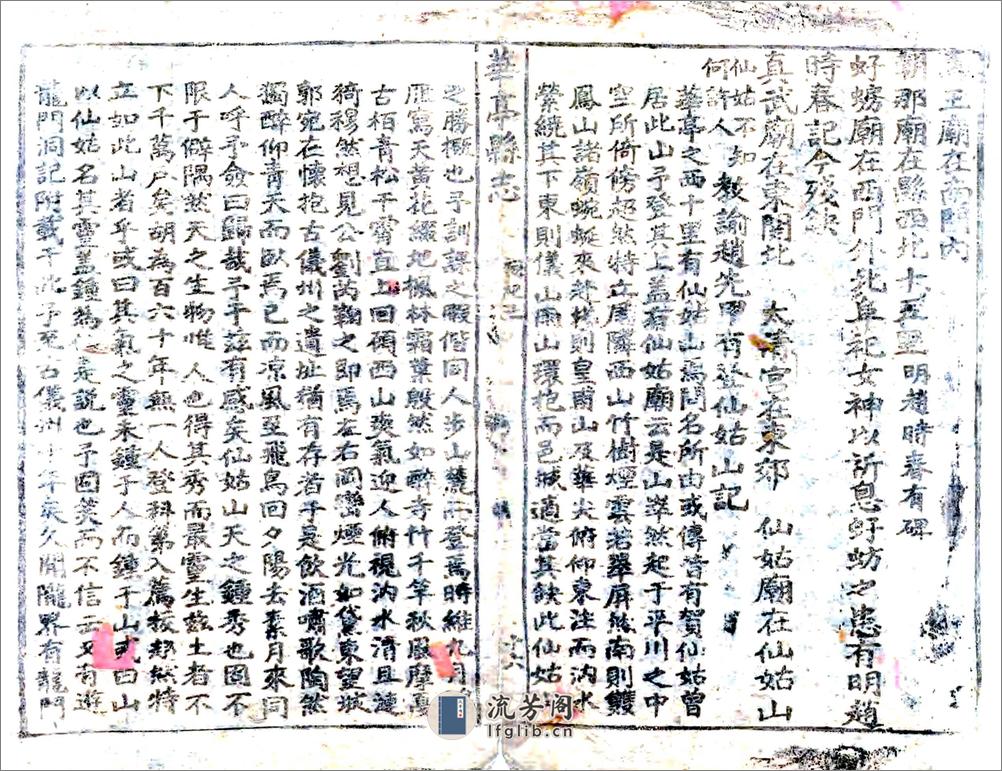 王廟在西門內
朝那廟在縣西北十五里明趙時春有碑
虸蝣廟在西門外北阜祀女神以祈息虸蚄之患有明趙
時春記今殘缺
真武廟在東關北 太清宮在東郊 仙姑廟在仙姑山
仙姑不知何許人 教諭趙先甲有登仙姑山記
華亭之西十里有仙姑山焉問名所由或傳昔有賀仙姑曾
居此山予登其上蓋有仙姑廟云是山崒然起于平川之中
空所倚傍超然特立居隣西山竹樹煙雲若翠屏然南則雙
鳳山諸嶺蜿蜒來赴北則皇甫山及華尖俯仰東注而汭水
縈繞其下東則儀山兩山環抱而邑城適當其缺此仙姑
之勝概也予訓課之暇偕同人步山麓而登焉時維九月
雁寫天黃花綴地楓林霜葉殷然如醉奇竹千竿秋風摩戛
古栢青松干霄直上回顧西山爽氣迎人俯視汭水清且漣
猗穆然想見公劉芮鞫之即焉左右岡巒煙光如黛東望坡
郭宛在懷抱古儀州之遺址猶有存者于是飲酒嘯歌陶然
獨醉仰青天而臥焉已而凉風至飛鳥回夕陽去素月來同
人呼予僉曰歸哉予于茲有感矣仙姑山天之鍾秀也固不
限于僻隅然天之生物惟人也得其秀而最靈生茲土者不
下千萬戶矣胡為百六十年無一人登科第入薦拔超然特
立如此山者乎或曰其氣之靈未鍾于人而鍾于山或曰山
以仙姑名其靈蓋鍾為仙是說也予固笑而不信云又有遊
龍門洞記附載于此予至古儀州十年矣久聞隴界有龍門
華亭縣志
流芳阁
lfglib.cn